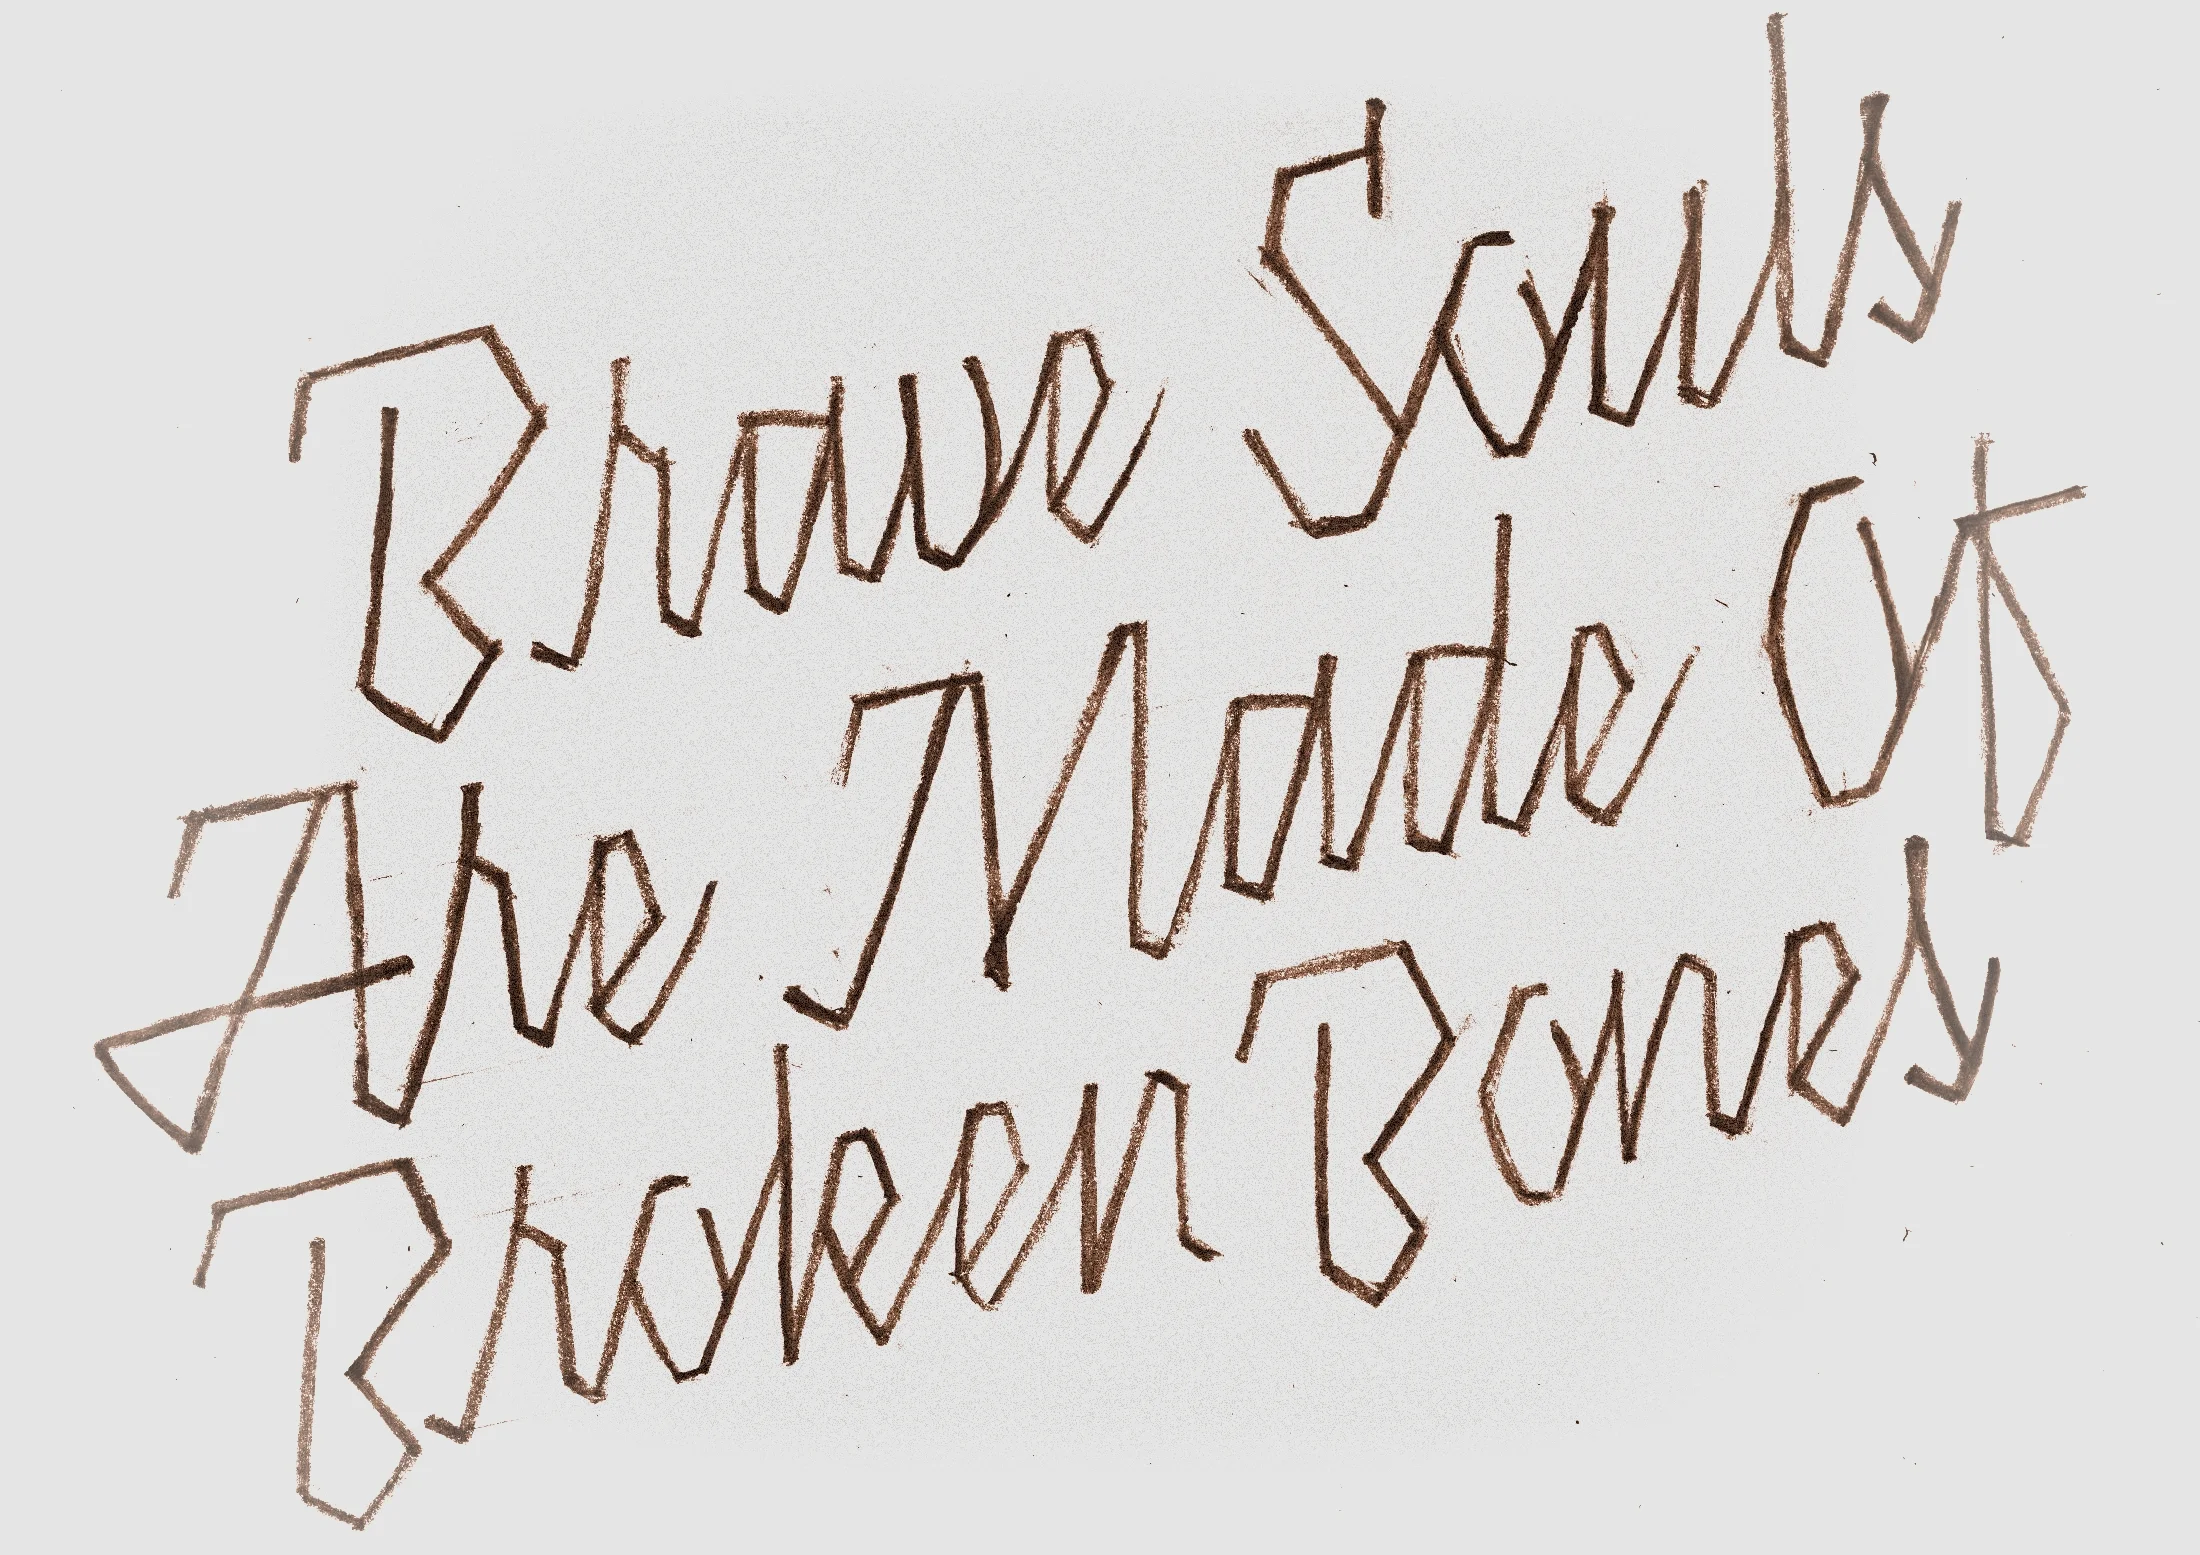 Brave Souls
Are Made Of
Broken Bones